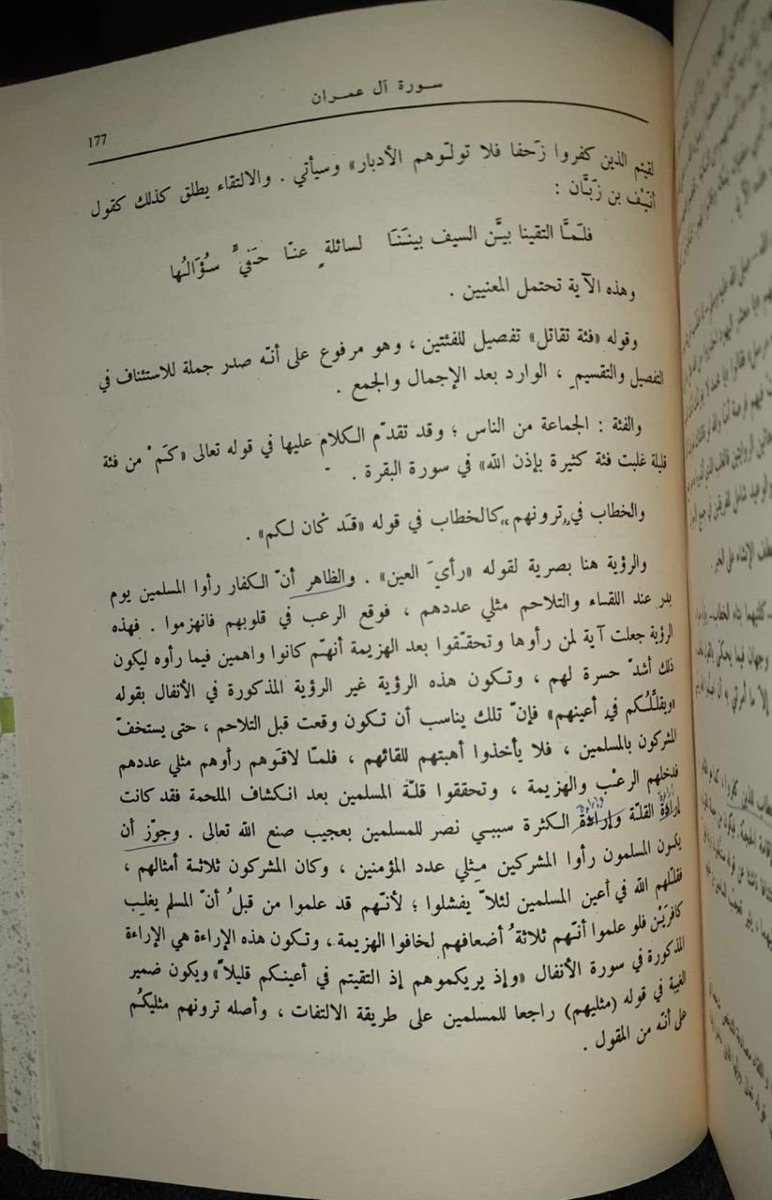 سورة آل عمران
177
لقيتم الذين كفروا زحفا فلا تولّوهم الأدبار» وسيأتي . والالتقاء يطلق كذلك كقول
أنَيْف بن زَبَّان :
فلَمَّا التقينا بيَّن السيف بينَنَا لسائلةٍ عنّا حَفيٌّ سُؤَالُها
وهذه الآية تحتمل المعنيين .
وقوله «فئة تقاتل» تفصيل للفئتين ، وهو مرفوع على أنّه صدر جملة للاستئناف في
التفصيل والتقسيم ، الوارد بعد الإجمال والجمع .
والفئة : الجماعة من الناس ؛ وقد تقدّم الكلام عليها في قوله تعالى «كَمْ من فئة
قليلة غلبت فئة كثيرة بإذن الله» في سورة البقرة .
والخطاب في „ترونهم“ كالخطاب في قوله «قَد كَان لكم» .
والرؤية هنا بصرية لقوله «رأيَ العين» . والظاهر أنّ الكفار رأوا المسلمين يوم
بدر عند اللقاء والتلاحم مثلي عددهم ، فوقع الرعب في قلوبهم فانهزموا . فهذه
الرؤية جعلت آية لمن رأوها وتحقّقوا بعد الهزيمة أنهّم كانوا واهمين فيما رأوه ليكون
ذلك أشدّ حسرة لهم ، وتكون هذه الرؤية غير الرؤية المذكورة في الأنفال بقوله
«ويقلّلُكم في أعينهم» فإنّ تلك يناسب أن تكون وقعت قبل التلاحم ، حتى يستخفّ
المشركون بالمسلمين ، فلا يأخذوا أهبتهم للقائهم ، فلمّا لاقَوهم رأوهم مثلي عددهم
فدخلهم الرعْب والهزيمة ، وتحققوا قلّة المسلمين بعد انكشاف الملحمة فقد كانت
إراءَة القلّة وإراءَة الكثرة سببي نصر للمسلمين بعجيب صنع الله تعالى . وجوّز أن
يكون المسلمون رأوا المشركين مِثلي عدد المؤمنين ، وكان المشركون ثلاثة أمثالهم ،
فقلّلهم الله في أعين المسلمين لئلاّ يفشلوا ؛ لأنّهم قد علموا من قبلُ أنّ المسلم يغلب
كافرَيْن فلو علموا أنّهم ثلاثةُ أضعافهم لخافوا الهزيمة ، وتكون هذه الإراءة هي الإراءة
المذكورة في سورة الأنفال «وإذ يريكموهم إذ التقيتم في أعينكم قليلاً» ويكون ضمير
الغيبة في قوله (مثليهم) راجعا للمسلمين على طريقة الالتفات ، وأصله ترونهم مثليكُم
على أنّه من المقول .